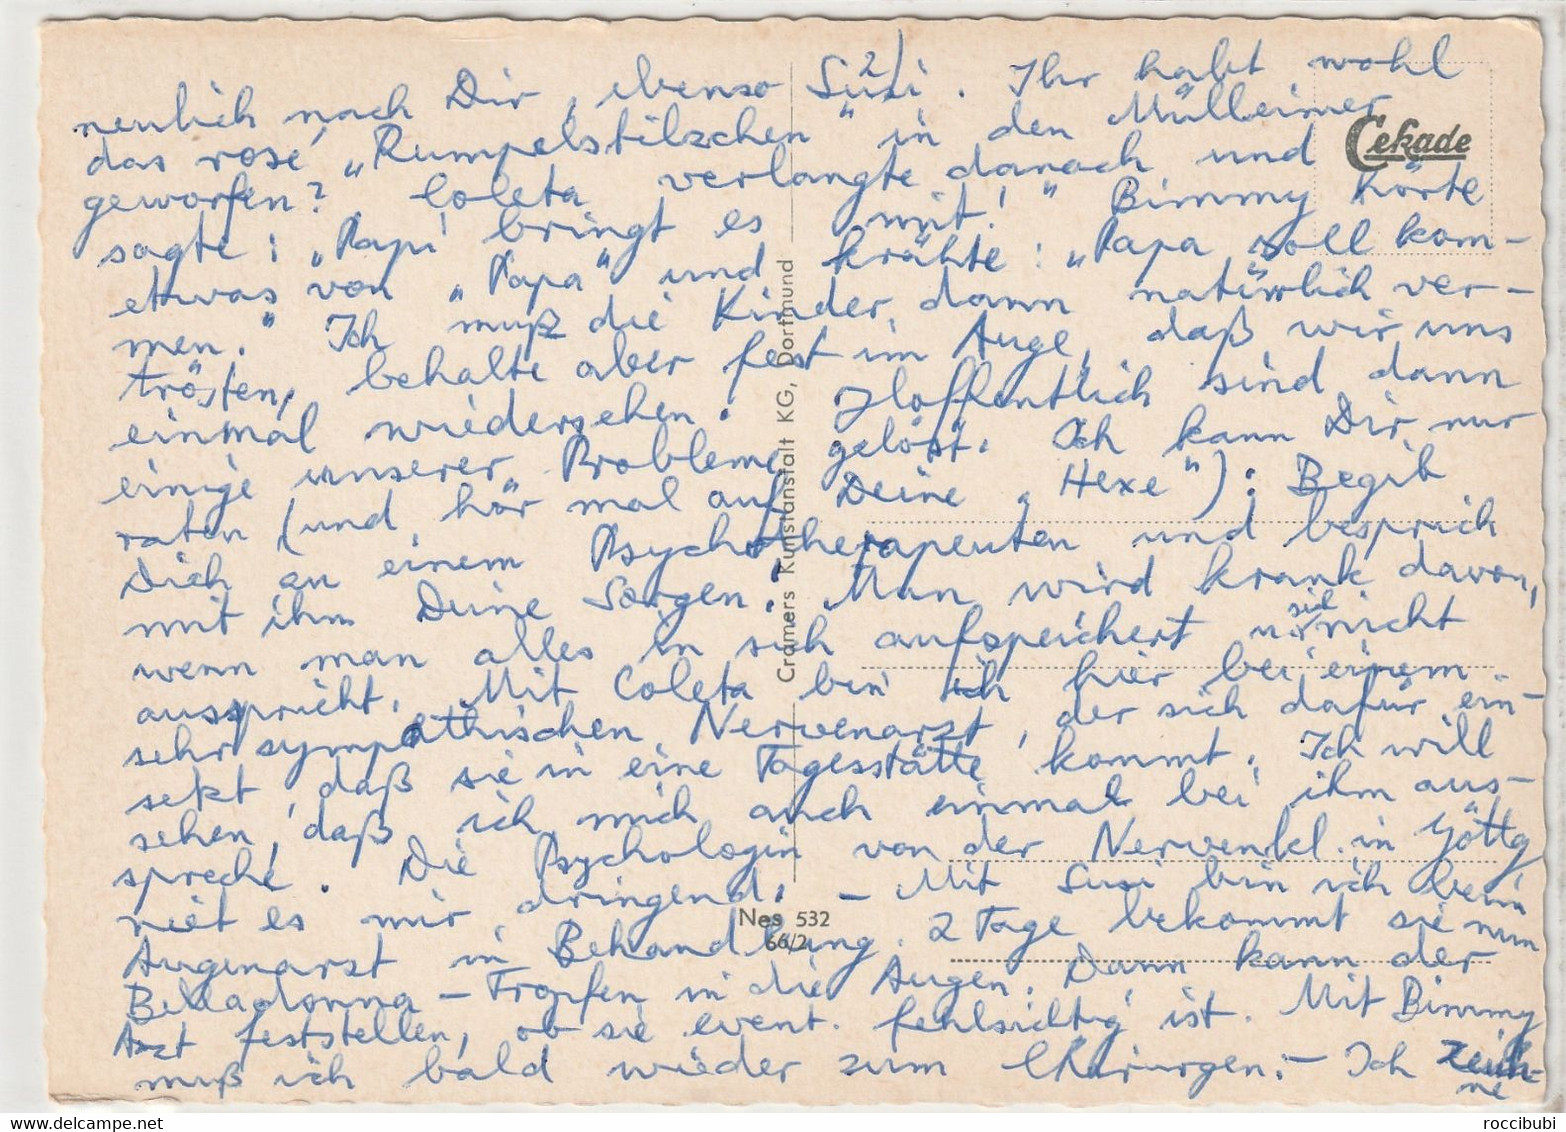 2)
neulich nach Dir, ebenso Susi. Ihr habt wohl
das rosé „Rumpelstilzchen" in den Mülleimer
geworfen? Coleta verlangte danach und
sagte: „Papi bringt es mit!" Bimmy hörte
etwas von „Papa" und krähte: „Papa soll kom-
men." Ich muß die Kinder dann natürlich ver-
trösten, behalte aber fest im Auge, daß wir uns
einmal wiedersehen. Hoffentlich sind dann
einige unserer Probleme gelöst. Ich kann Dir nur
raten (und hör mal auf Deine „Hexe"): Begib
Dich zu einem Psychotherapeuten und besprich
mit ihm Deine Sorgen. Man wird krank davon,
wenn man alles in sich aufspeichert u. sich nicht
ausspricht. Mit Coleta bin ich hier bei einem
sehr sympathischen Nervenarzt, der sich dafür ein-
setzt, daß sie in eine Tagesstätte kommt. Ich will
sehen, daß ich mich auch einmal bei ihm aus-
spreche. Die Psychologin von der Nervenkl. in Göttg
riet es mir dringend. – Mit Susi bin ich beim
Augenarzt in Behandlung. 2 Tage bekommt sie nun
Belladonna-Tropfen in die Augen. Dann kann der
Arzt feststellen, ob sie event. fehlsichtig ist. Mit Bimmy
muß ich bald wieder zum Chirurgen. – Ich zeich-
ne
Cekade
Cramers Kunstanstalt KG, Dortmund
Nes 532
66/2
roccibubi